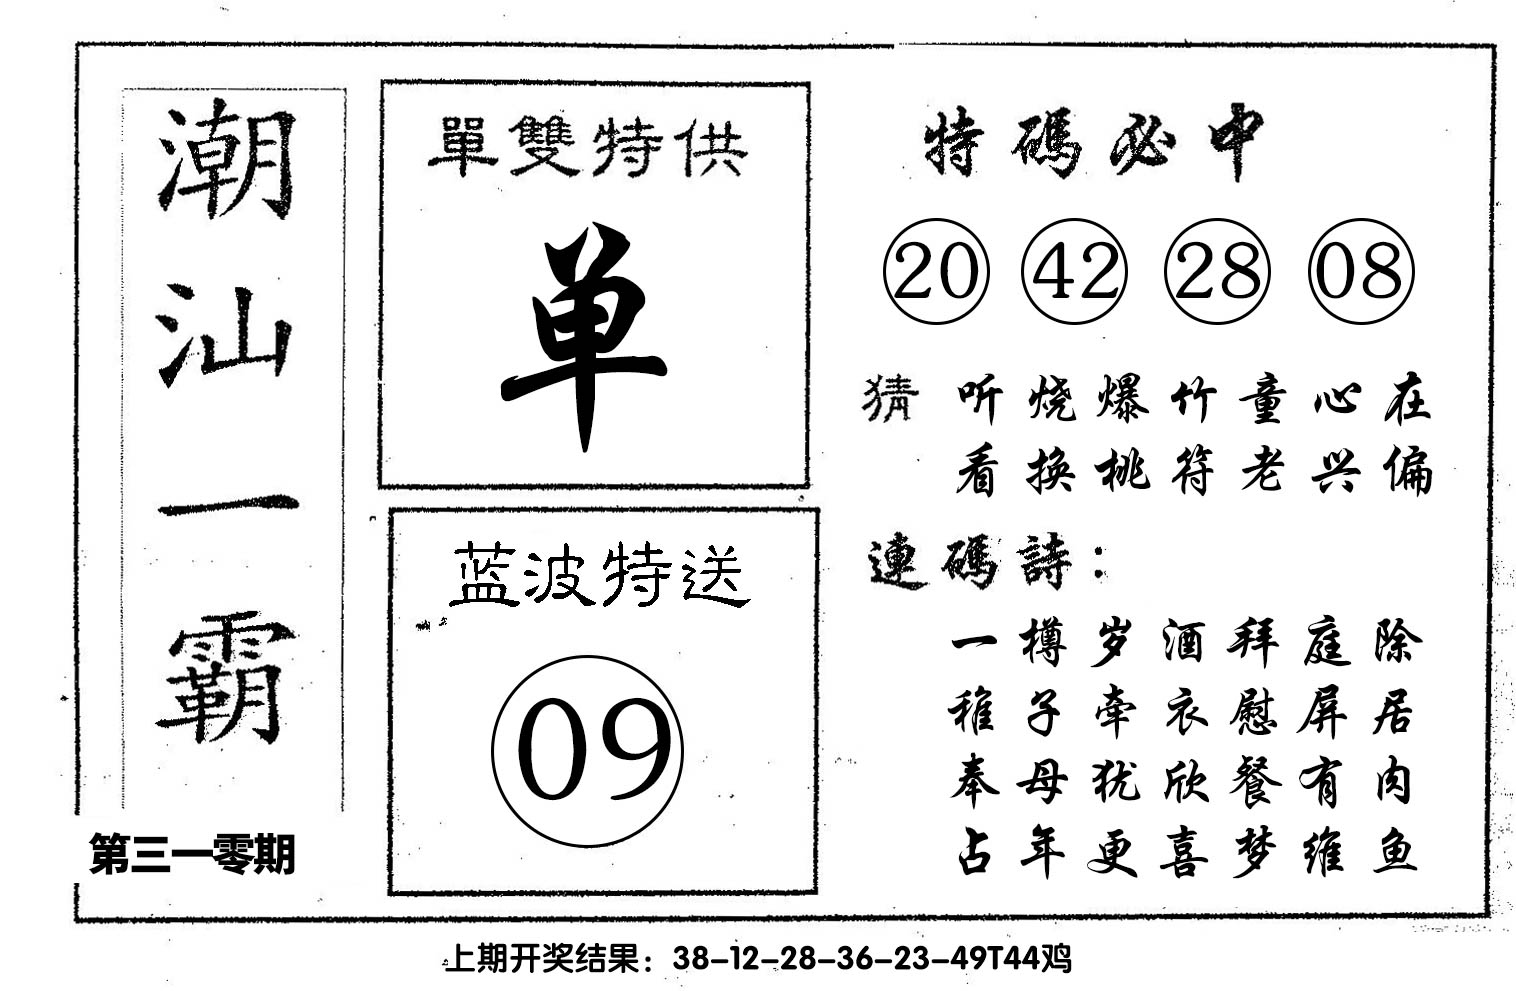 潮汕一霸
第三一零期
單雙特供
单
蓝波特送
09
特碼必中
20 42 28 08
猜 听烧爆竹童心在
看换桃符老兴偏
連碼詩：
一樽岁酒拜庭除
稚子牵衣慰屏居
奉母犹欣餐有肉
占年更喜梦维鱼
上期开奖结果：38-12-28-36-23-49T44鸡